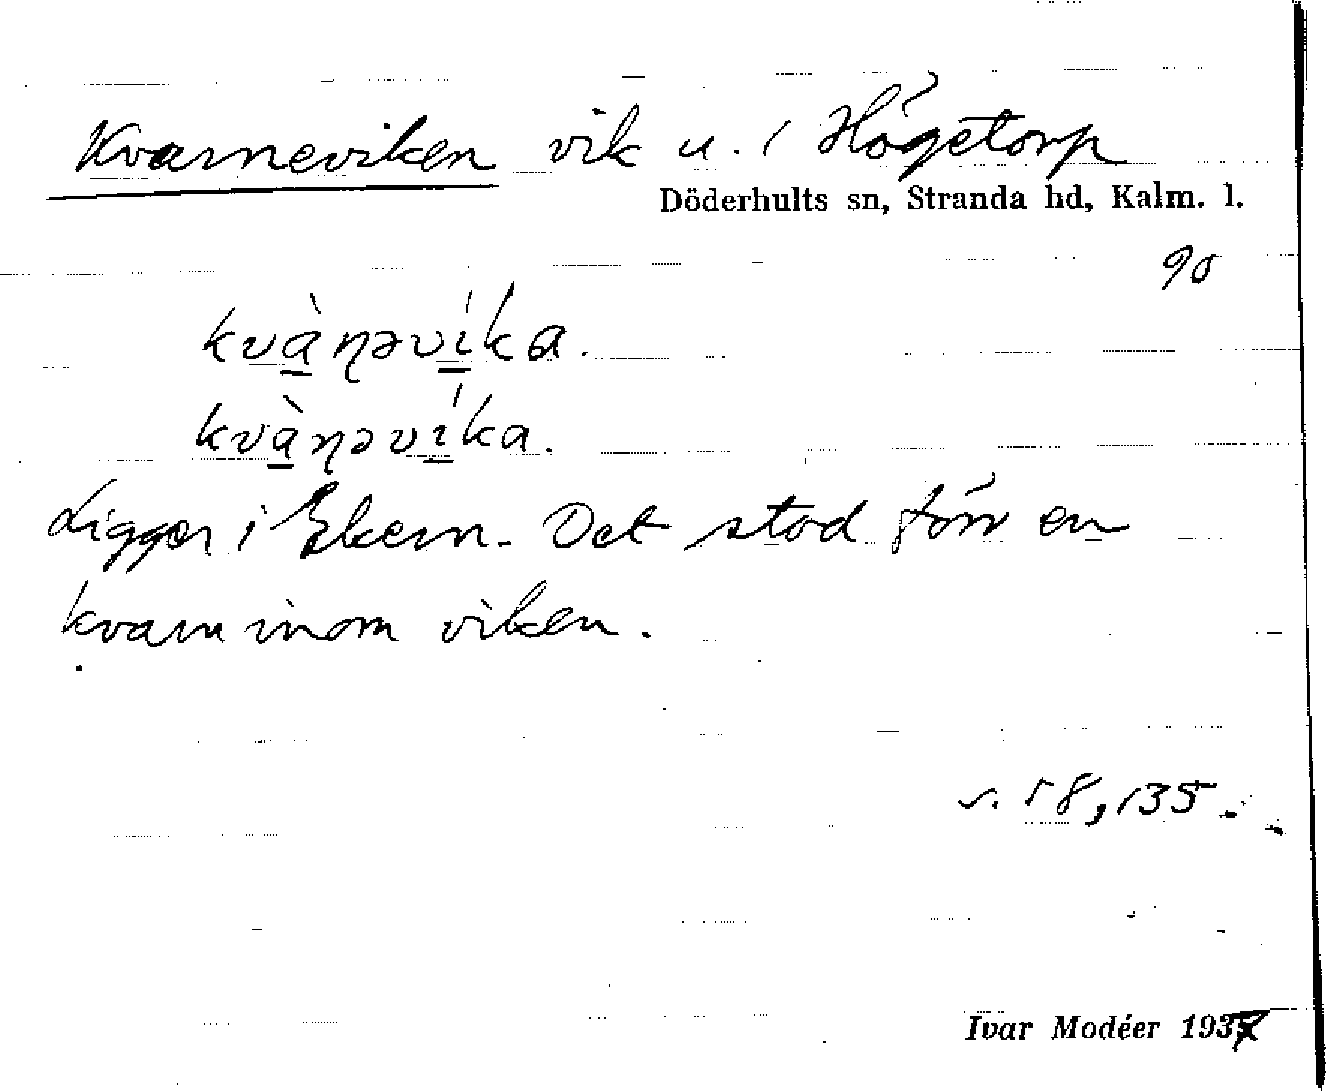 Kvarneviken vik u. 1 Högetorp
Döderhults sn, Stranda hd, Kalm. l.
90
kvànəvíka.
kvànəvíka.
Ligger i Ekern. Det stod förr en
kvarn inom viken.
s. 18,135.
Ivar Modéer 1937